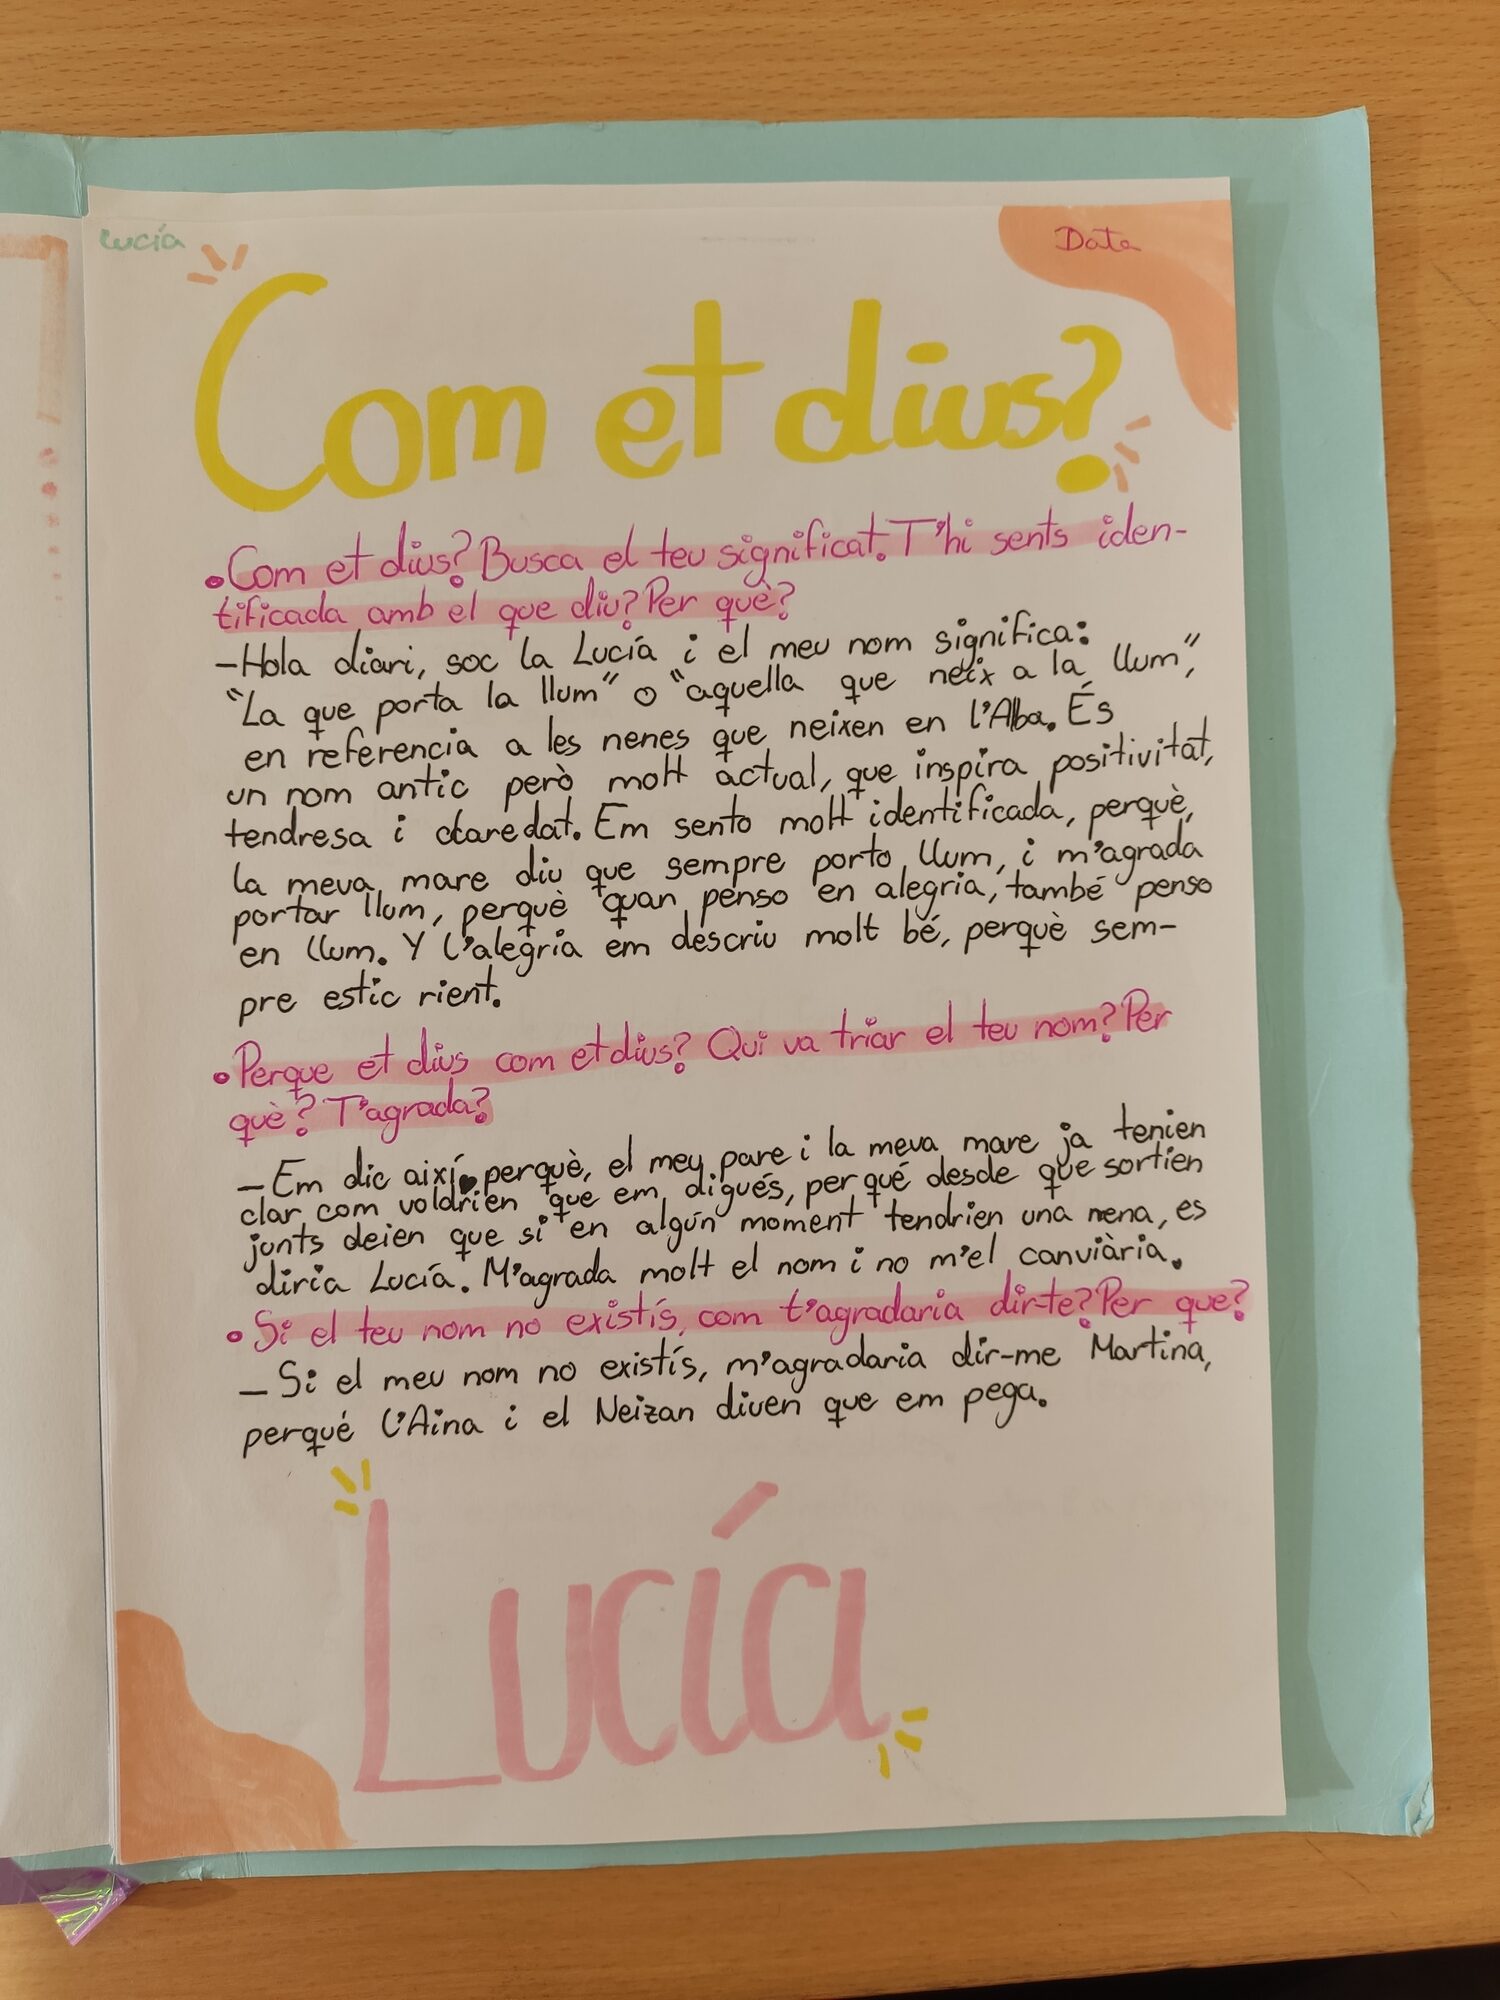 Lucía
Data
Com et dius?
•Com et dius? Busca el teu significat. T'hi sents iden-
tificada amb el que diu? Per què?
-Hola diari, soc la Lucía i el meu nom significa:
"La que porta la llum" o "aquella que neix a la llum",
en referencia a les nenes que neixen en l'Alba. És
un nom antic però molt actual, que inspira positivitat,
tendresa i claredat. Em sento molt identificada, perquè,
la meva mare diu que sempre porto llum, i m'agrada
portar llum, perquè quan penso en alegria, també penso
en llum. Y l'alegria em descriu molt bé, perquè sem-
pre estic rient.
•Perque et dius com et dius? Qui va triar el teu nom? Per
què? T'agrada?
-Em dic així perquè, el meu pare i la meva mare ja tenien
clar com voldrien que em digués, perqué desde que sortien
junts deien que si en algún moment tendrien una nena, es
diria Lucía. M'agrada molt el nom i no m'el canviària.
•Si el teu nom no existís, com t'agradaria dir-te? Per que?
-Si el meu nom no existís, m'agradaria dir-me Martina,
perqué l'Aina i el Neizan diuen que em pega.
Lucía